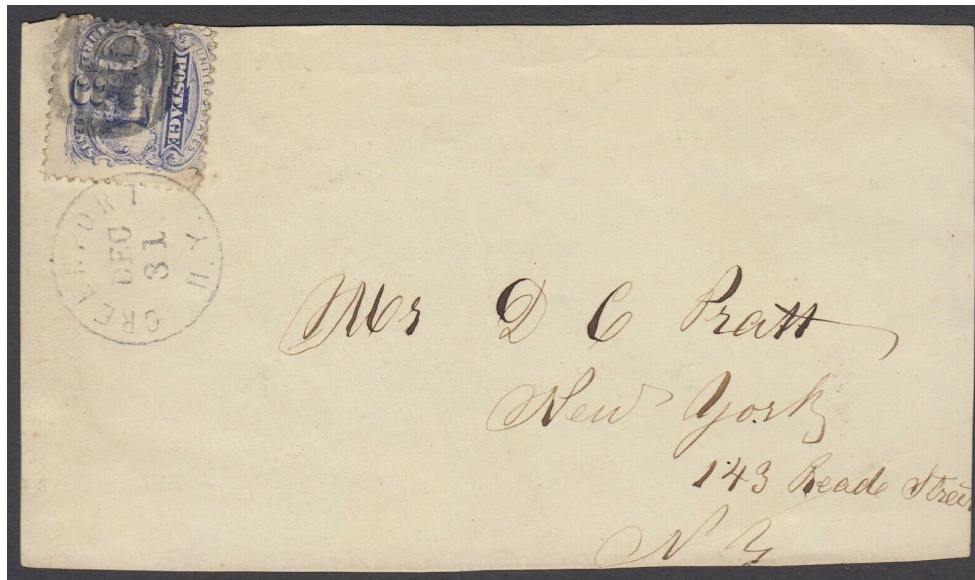 UNITED STATES
POSTAGE
3
GREENPORT
DEC
31
N.Y.
Mr D C Pratt
New York
143 Reade Street
N Y